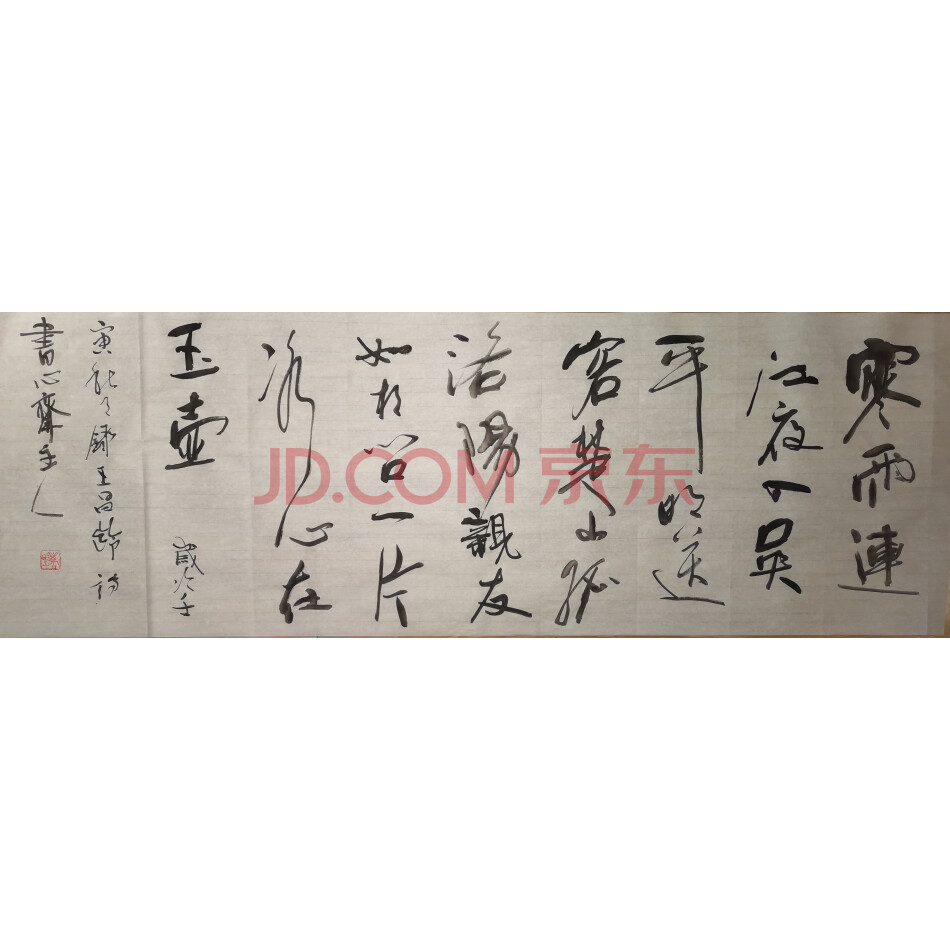 寒雨連
江夜入吳
平明送
客楚山孤
洛陽親友
如相問一片
冰心在
玉壺 歲次壬
寅 録王昌齡詩
書心齋主人
JD.COM 京东